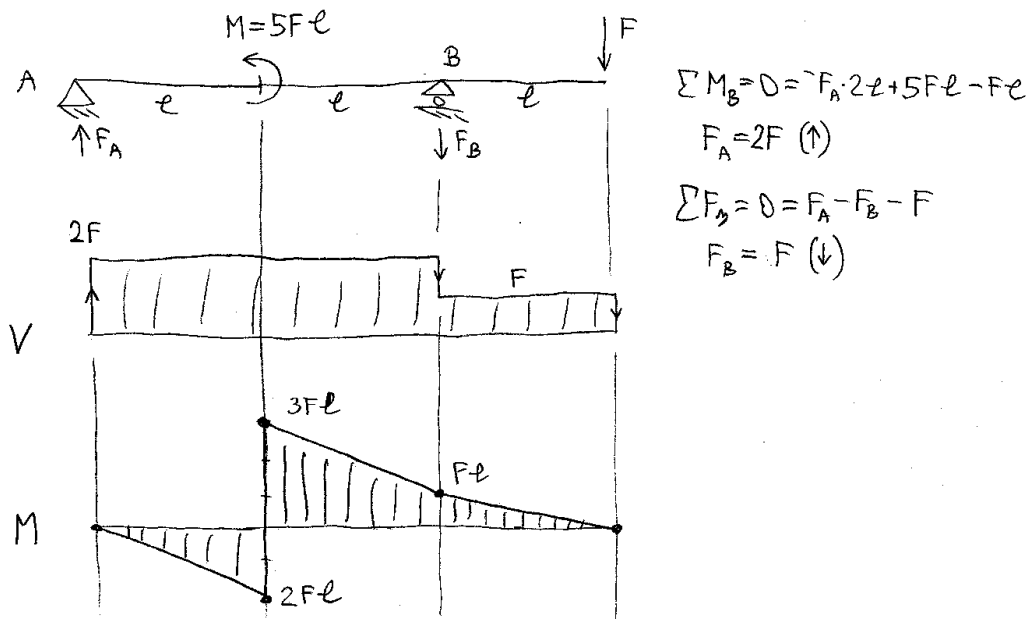 M=5Fℓ
F
A
B
ℓ
ℓ
ℓ
F_A
F_B
ΣM_B=0=-F_A·2ℓ+5Fℓ-Fℓ
F_A=2F (↑)
ΣF_y=0=F_A-F_B-F
F_B=F (↓)
2F
F
V
3Fℓ
Fℓ
M
2Fℓ